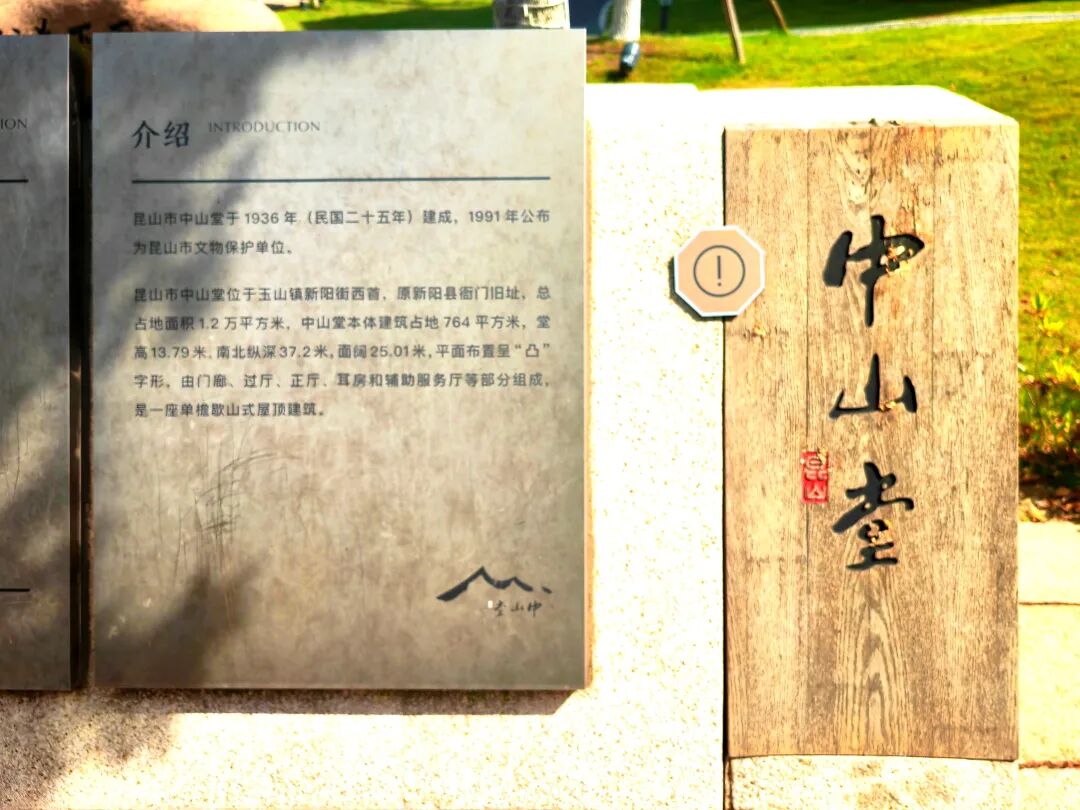 ION
介绍 INTRODUCTION
昆山市中山堂于1936年（民国二十五年）建成，1991年公布
为昆山市文物保护单位。
昆山市中山堂位于玉山镇新阳街西首，原新阳县衙门旧址，总
占地面积1.2万平方米，中山堂本体建筑占地764平方米，堂
高13.79米，南北纵深37.2米，面阔25.01米，平面布置呈“凸”
字形，由门廊、过厅、正厅、耳房和辅助服务厅等部分组成，
是一座单檐歇山式屋顶建筑。
堂山中
中山堂
昆山